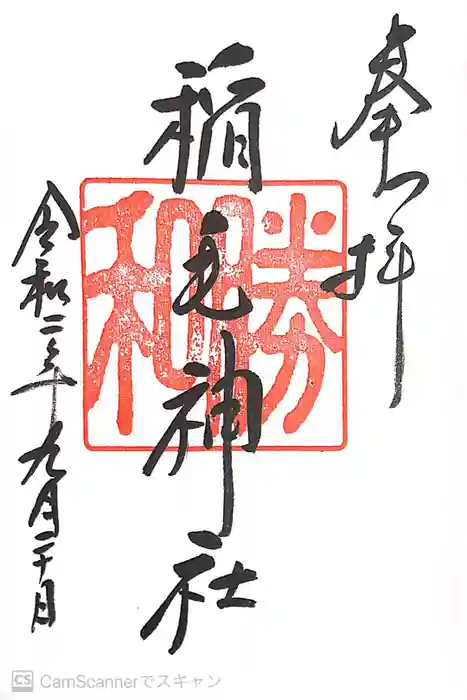 奉拝
稲毛神社
勝和
令和二年九月二十日
CS CamScannerでスキャン